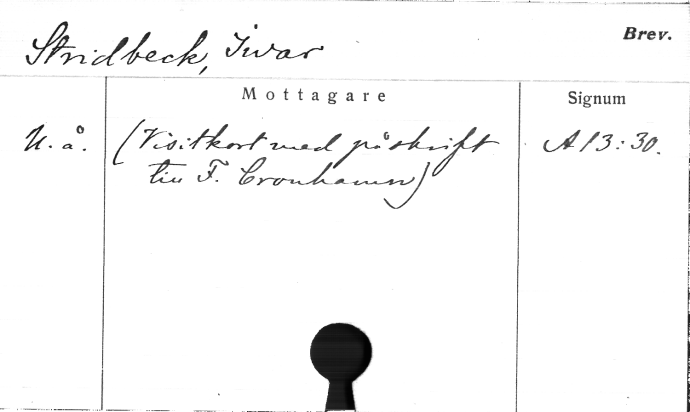 Stridbeck, Ivar
Brev.
Mottagare
Signum
U. å. (Visitkort med påskrift A 13:30.
till F. Cronhamn)